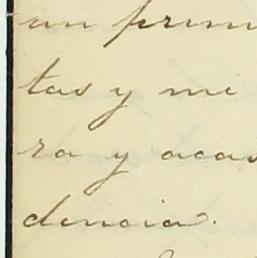 un prim
tas y me
ra y acas
dencia.